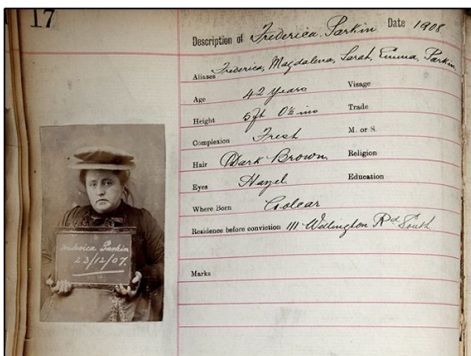 17
Description of Frederica Parkin Date 1908
Aliases Frederica, Magdalena, Sarah, Emma, Parkin
Age 42 Years Visage
Height 5 ft 0½ ins Trade
Complexion Fresh M. or S.
Hair Dark Brown Religion
Eyes Hazel Education
Where Born
Residence before conviction 111 Wellington Rd South
Marks
Frederica Parkin
23/12/07.